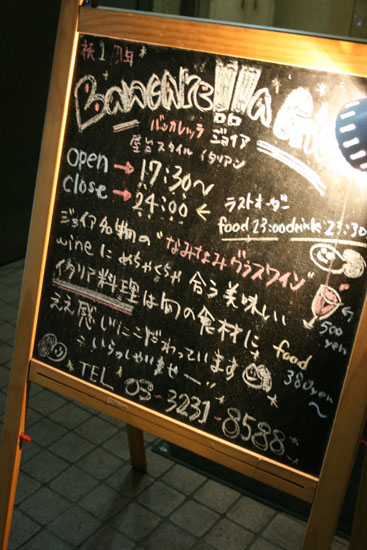 祝1周年
Bancarella Gioia
バンカレッラ ジョイア
屋台スタイル イタリアン
open → 17:30〜
close → 24:00 ←
ラストオーダー
food 23:00 drink 23:30
ジョイア名物の"なみなみグラスワイン"
wineにめちゃくちゃ合う美味しい
イタリア料理は旬の食材に
ええ感じにこだわっています
いらっしゃいませー
500 yen
food 380yen〜
TEL 03-3231-8588